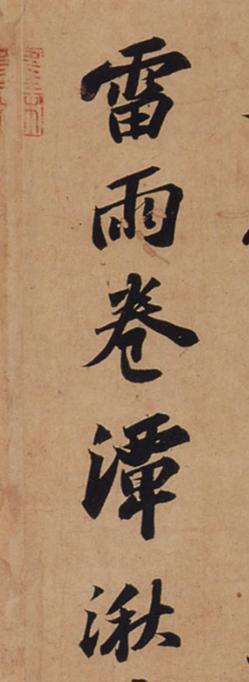 雷雨卷潭湫